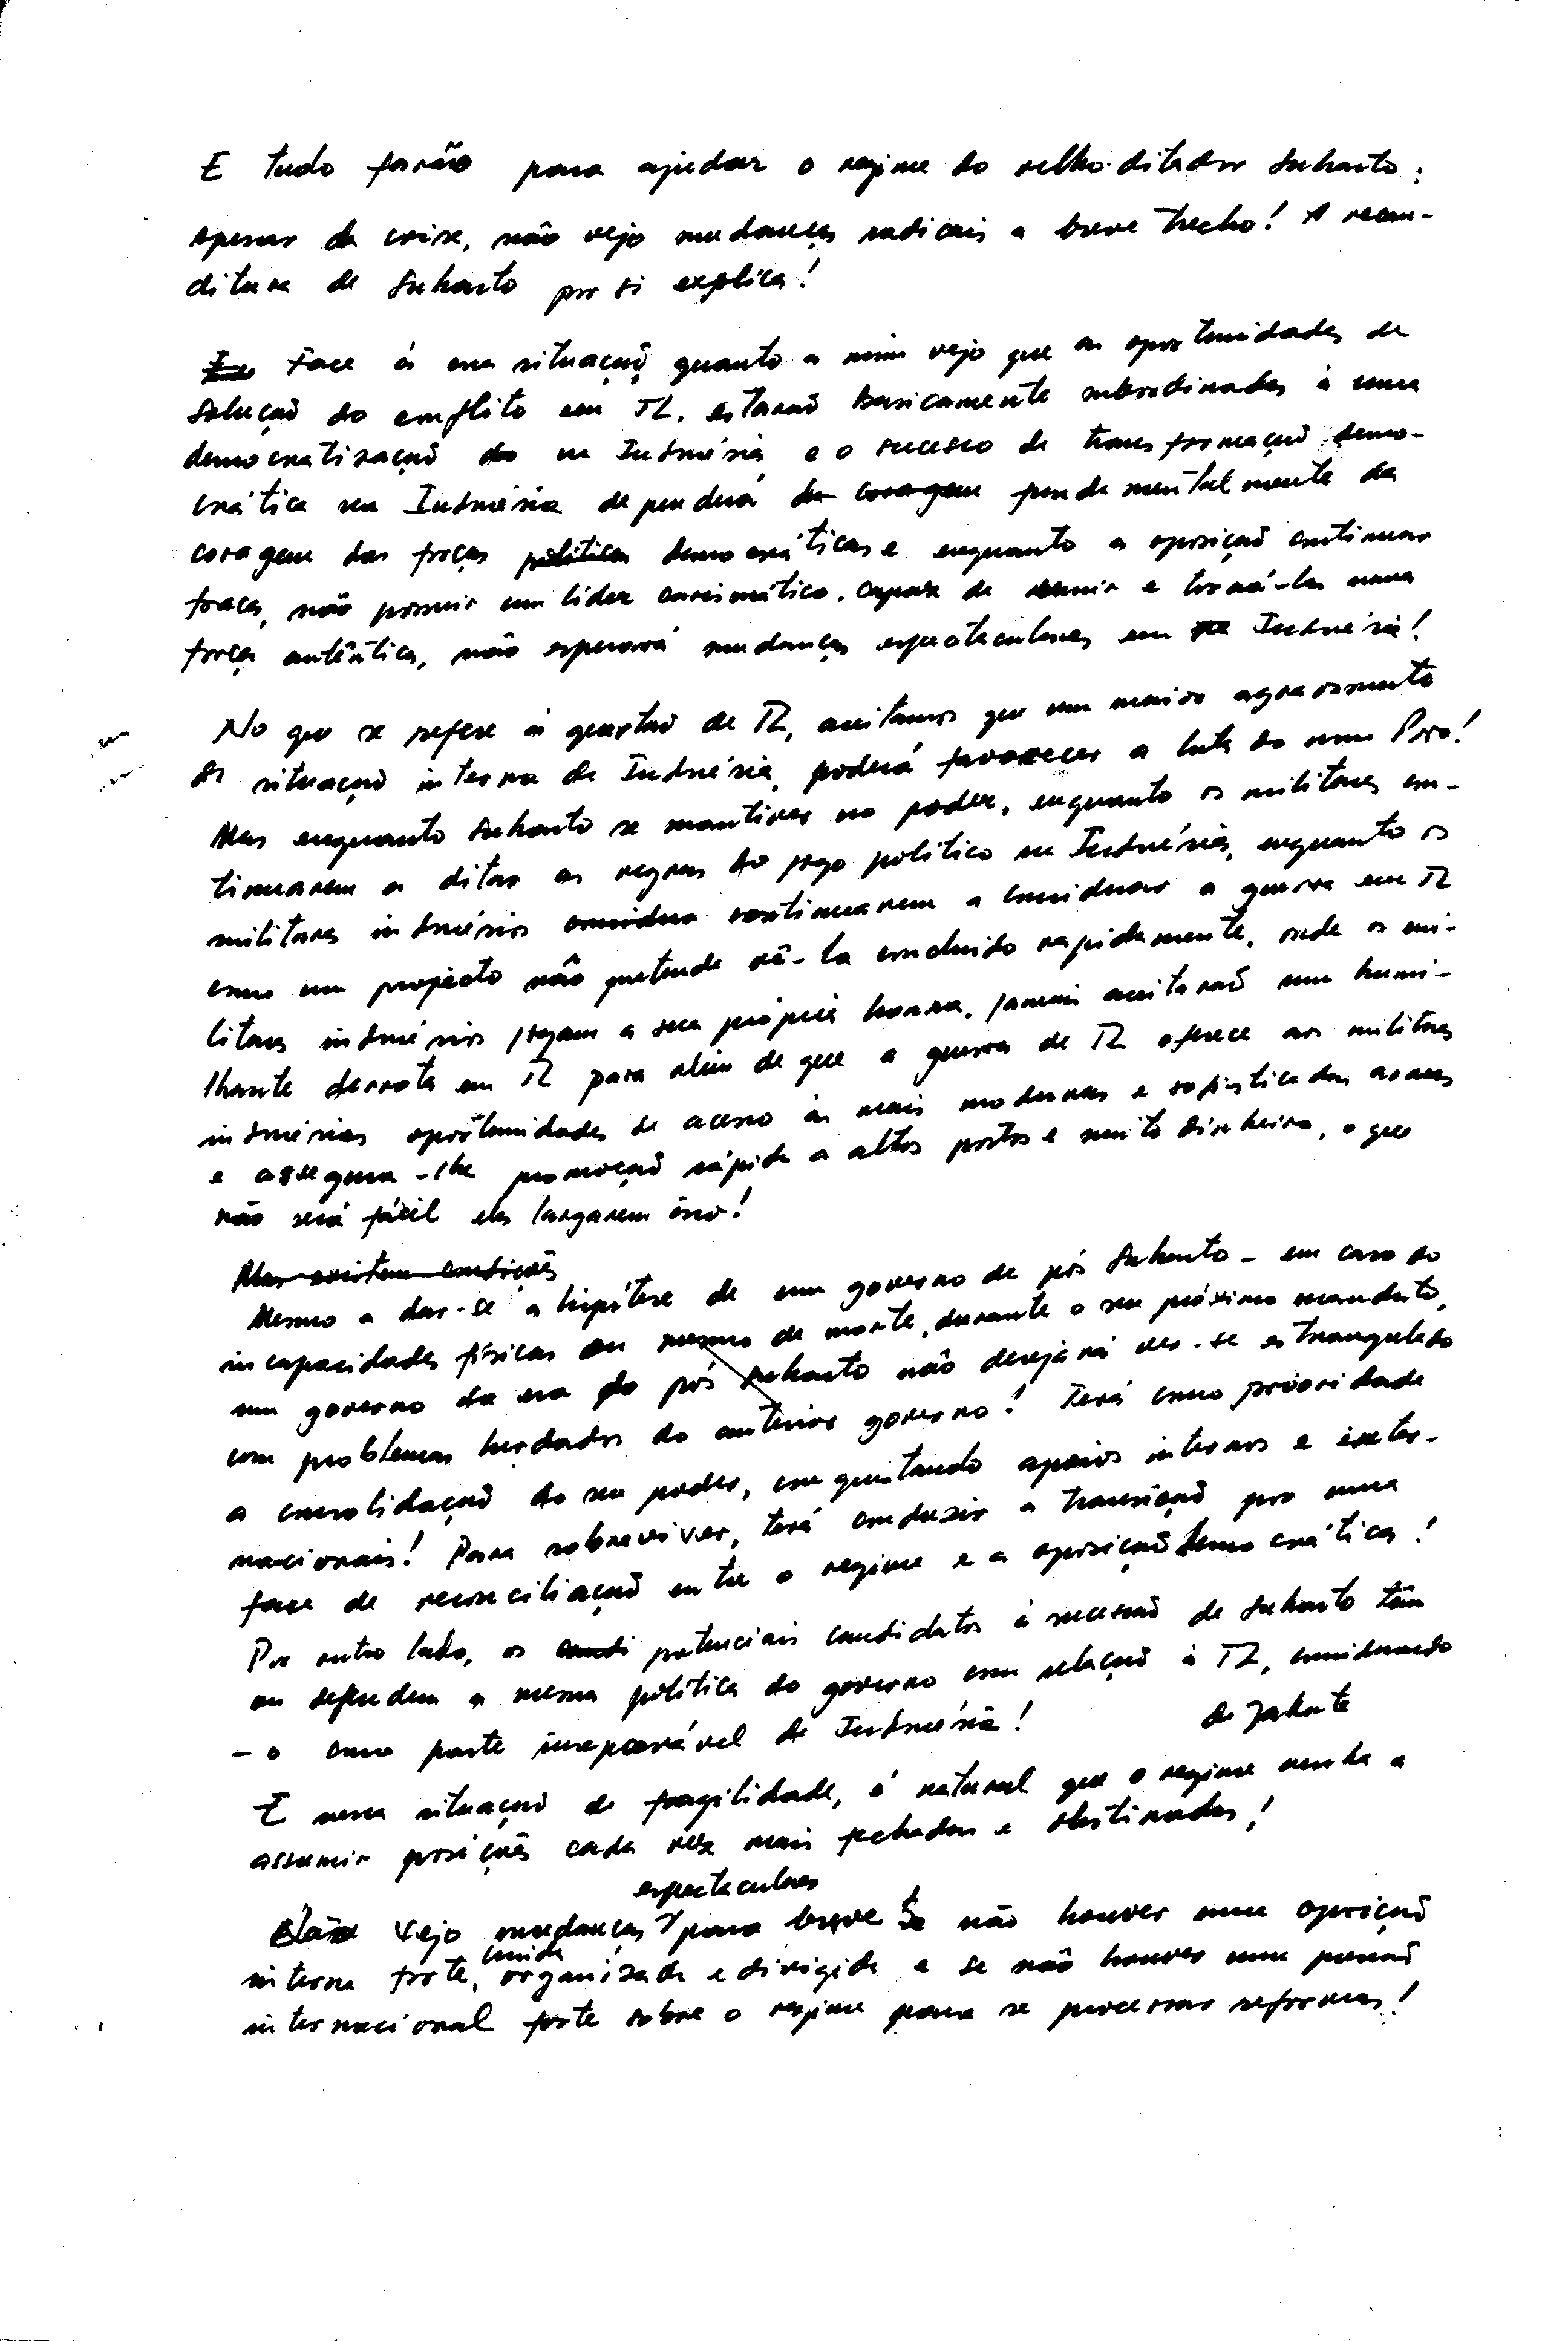 E tudo farão para ajudar o regime do velho ditador Suharto;
Apesar da crise, não vejo mudanças radicais a breve trecho! A recan-
ditura de Suharto por si explica!
Face à essa situação quanto a mim vejo que as oportunidades de
solução do conflito em TL. estarão basicamente subordinadas à uma
democratisação da na Indonésia, e o sucesso de transformação demo-
crática na Indonésia dependerá da coragem fundamentalmente da
coragem das forças políticas democráticas e enquanto a oposição continuar
fraca, não possuir um líder carismático. capaz de reunir e torná-las numa
força autêntica, não esperará mudanças espectaculares em Indonésia!
No que se refere à questão de TL, aceitamos que um maior agravamento
da situação interna da Indonésia, poderá favorecer a luta do nosso Povo!
Mas enquanto Suharto se mantiver no poder, enquanto os militares con-
tinuarem a ditar as regras do jogo político na Indonésia, enquanto os
militares indonésios considera continuarem a considerar a guerra em TL
como um projecto não pretende vê-la concluido rapidamente, onde os mi-
litares indonésios jogam a sua própria honra, jamais aceitarão uma humi-
lhante derrota em TL para além de que a guerra de TL oferece aos militares
indonésios oportunidades de acesso às mais modernas e sofisticadas armas
e assegura-lhe promoção rápida a altos postos e muito dinheiro, o que
não será fácil eles largarem isso!
Mas existem condições
Mesmo a dar-se a hipótese de um governo de pós Suharto - em caso do
incapacidades físicas ou mesmo de morte, durante o seu próximo mandato,
um governo da era do pós Suharto não desejará ver-se estrangulado
com problemas herdados do anterior governo! Terá como prioridade
a consolidação do seu poder, conquistando apoios internos e inter-
nacionais! Para sobreviver, terá conduzir a transição por uma
fase de reconciliação entre o regime e a oposição democrática!
Por outro lado, os candi potenciais candidatos à sucessão de Suharto têm
ou defendem a mesma política do governo com relação à TL, considerando
-o como parte inseparável da Indonésia!
de Jakarta
E nessa situação de fragilidade, é natural que o regime venha a
assumir posições cada vez mais fechadas e obstinadas!
espectaculares
Não vejo mudanças para breve Se não houver uma oposição
unida
interna forte, organizada e dirigida e se não houver uma pressão
internacional forte sobre o regime para se processar reformas!